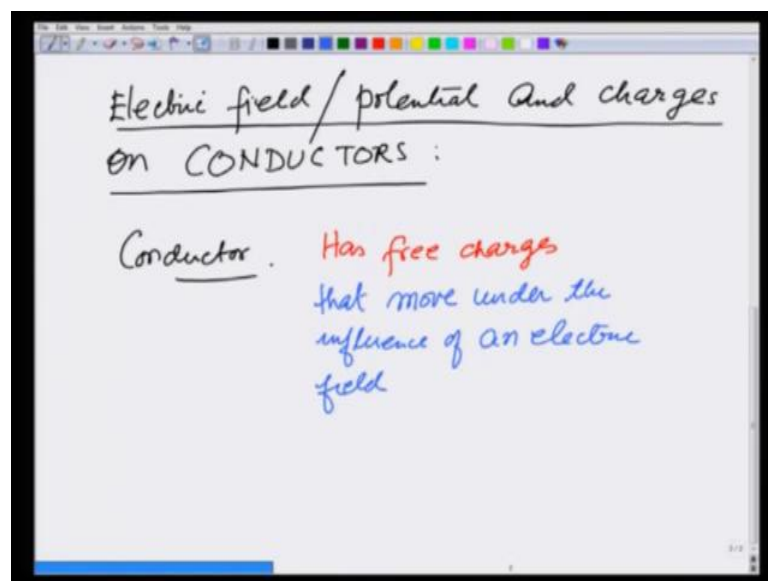 File Edit View Insert Actions Tools Help
Electric field / potential and charges
on CONDUCTORS :
Conductor. Has free charges
that move under the
influence of an electric
field